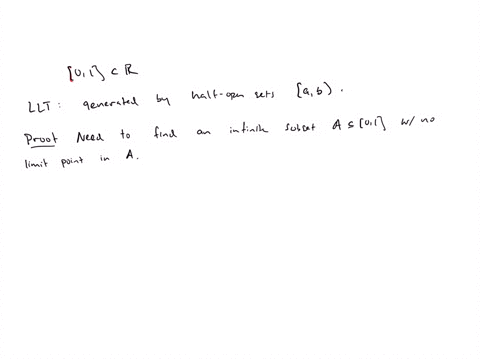 [0,1] ⊂ ℝ
LLT: generated by half-open sets [a,b).
Proof Need to find an infinite subset A ⊆ [0,1] w/ no
limit point in A.